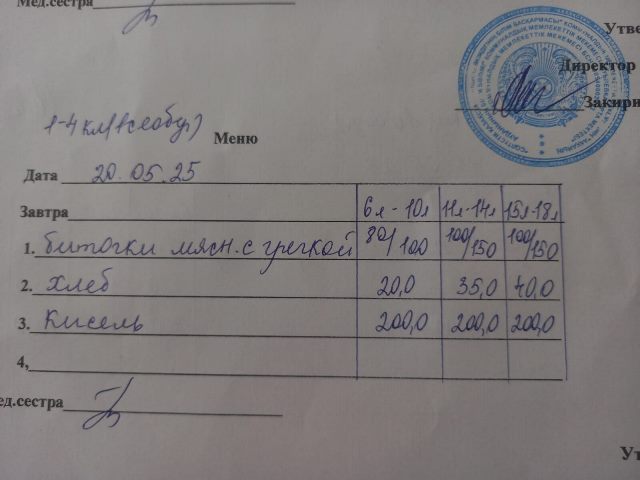 Мед.сестра
Утве
Директор
Закири
1-4 кл (Всеобуч)
Меню
Дата 20.05.25
Завтра 6л-10л 11л-14л 15л-18л
1. биточки мясн. с гречкой 80/100 100/150 100/150
2. хлеб 20,0 35,0 40,0
3. Кисель 200,0 200,0 200,0
4,
ед.сестра
Ут